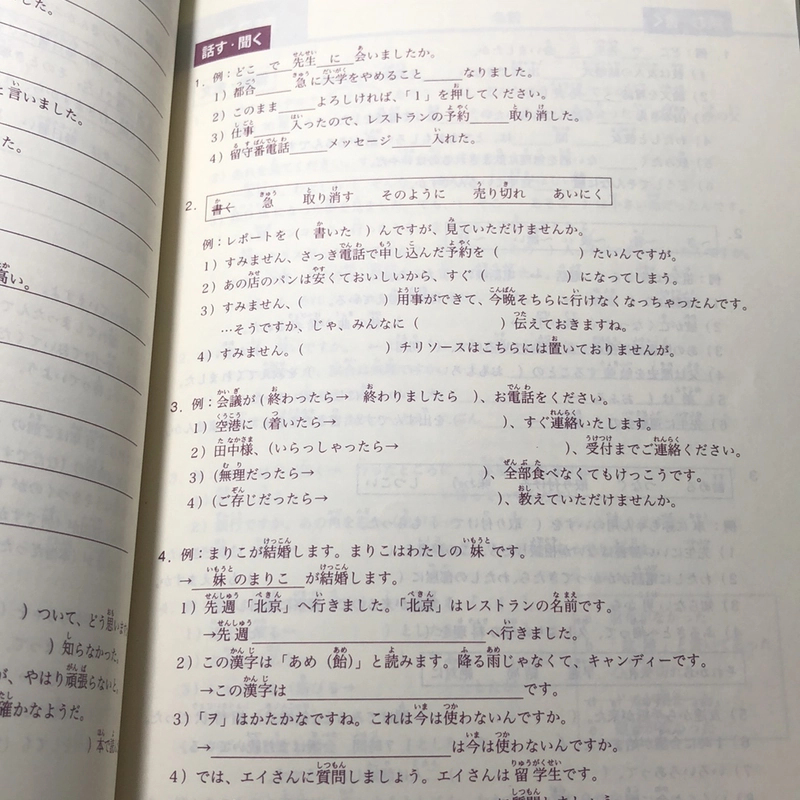 と言いました。
た。
高い。
) ついて、どう思いま
) 知らなかった。
が、やはり頑張らないと、
確かなようだ。
話す・聞く
1. 例：どこ で 先生 に 会いましたか。
1）都合＿＿＿急に大学をやめること＿＿＿なりました。
2）このまま＿＿＿よろしければ、「1」を押してください。
3）仕事＿＿＿入ったので、レストランの予約＿＿＿取り消した。
4）留守番電話＿＿＿メッセージ＿＿＿入れた。
2. 書く 急 取り消す そのように 売り切れ あいにく
例：レポートを（ 書いた ）んですが、見ていただけませんか。
1）すみません、さっき電話で申し込んだ予約を（ ）たいんですが。
2）あの店のパンは安くておいしいから、すぐ（ ）になってしまう。
3）すみません、（ ）用事ができて、今晩そちらに行けなくなっちゃったんです。
…そうですか、じゃ、みんなに（ ）伝えておきますね。
4）すみません。（ ）チリソースはこちらには置いておりませんが。
3. 例：会議が（終わったら→ 終わりましたら ）、お電話をください。
1）空港に（着いたら→ ）、すぐ連絡いたします。
2）田中様、（いらっしゃったら→ ）、受付までご連絡ください。
3）（無理だったら→ ）、全部食べなくてもけっこうです。
4）（ご存じだったら→ ）、教えていただけませんか。
4. 例：まりこが結婚します。まりこはわたしの妹です。
→ 妹のまりこ が結婚します。
1）先週「北京」へ行きました。「北京」はレストランの名前です。
→先週＿＿＿へ行きました。
2）この漢字は「あめ（飴）」と読みます。降る雨じゃなくて、キャンディーです。
→この漢字は＿＿＿です。
3）「ヲ」はかたかなですね。これは今は使わないんですか。
→＿＿＿は今は使わないんですか。
4）では、エイさんに質問しましょう。エイさんは留学生です。